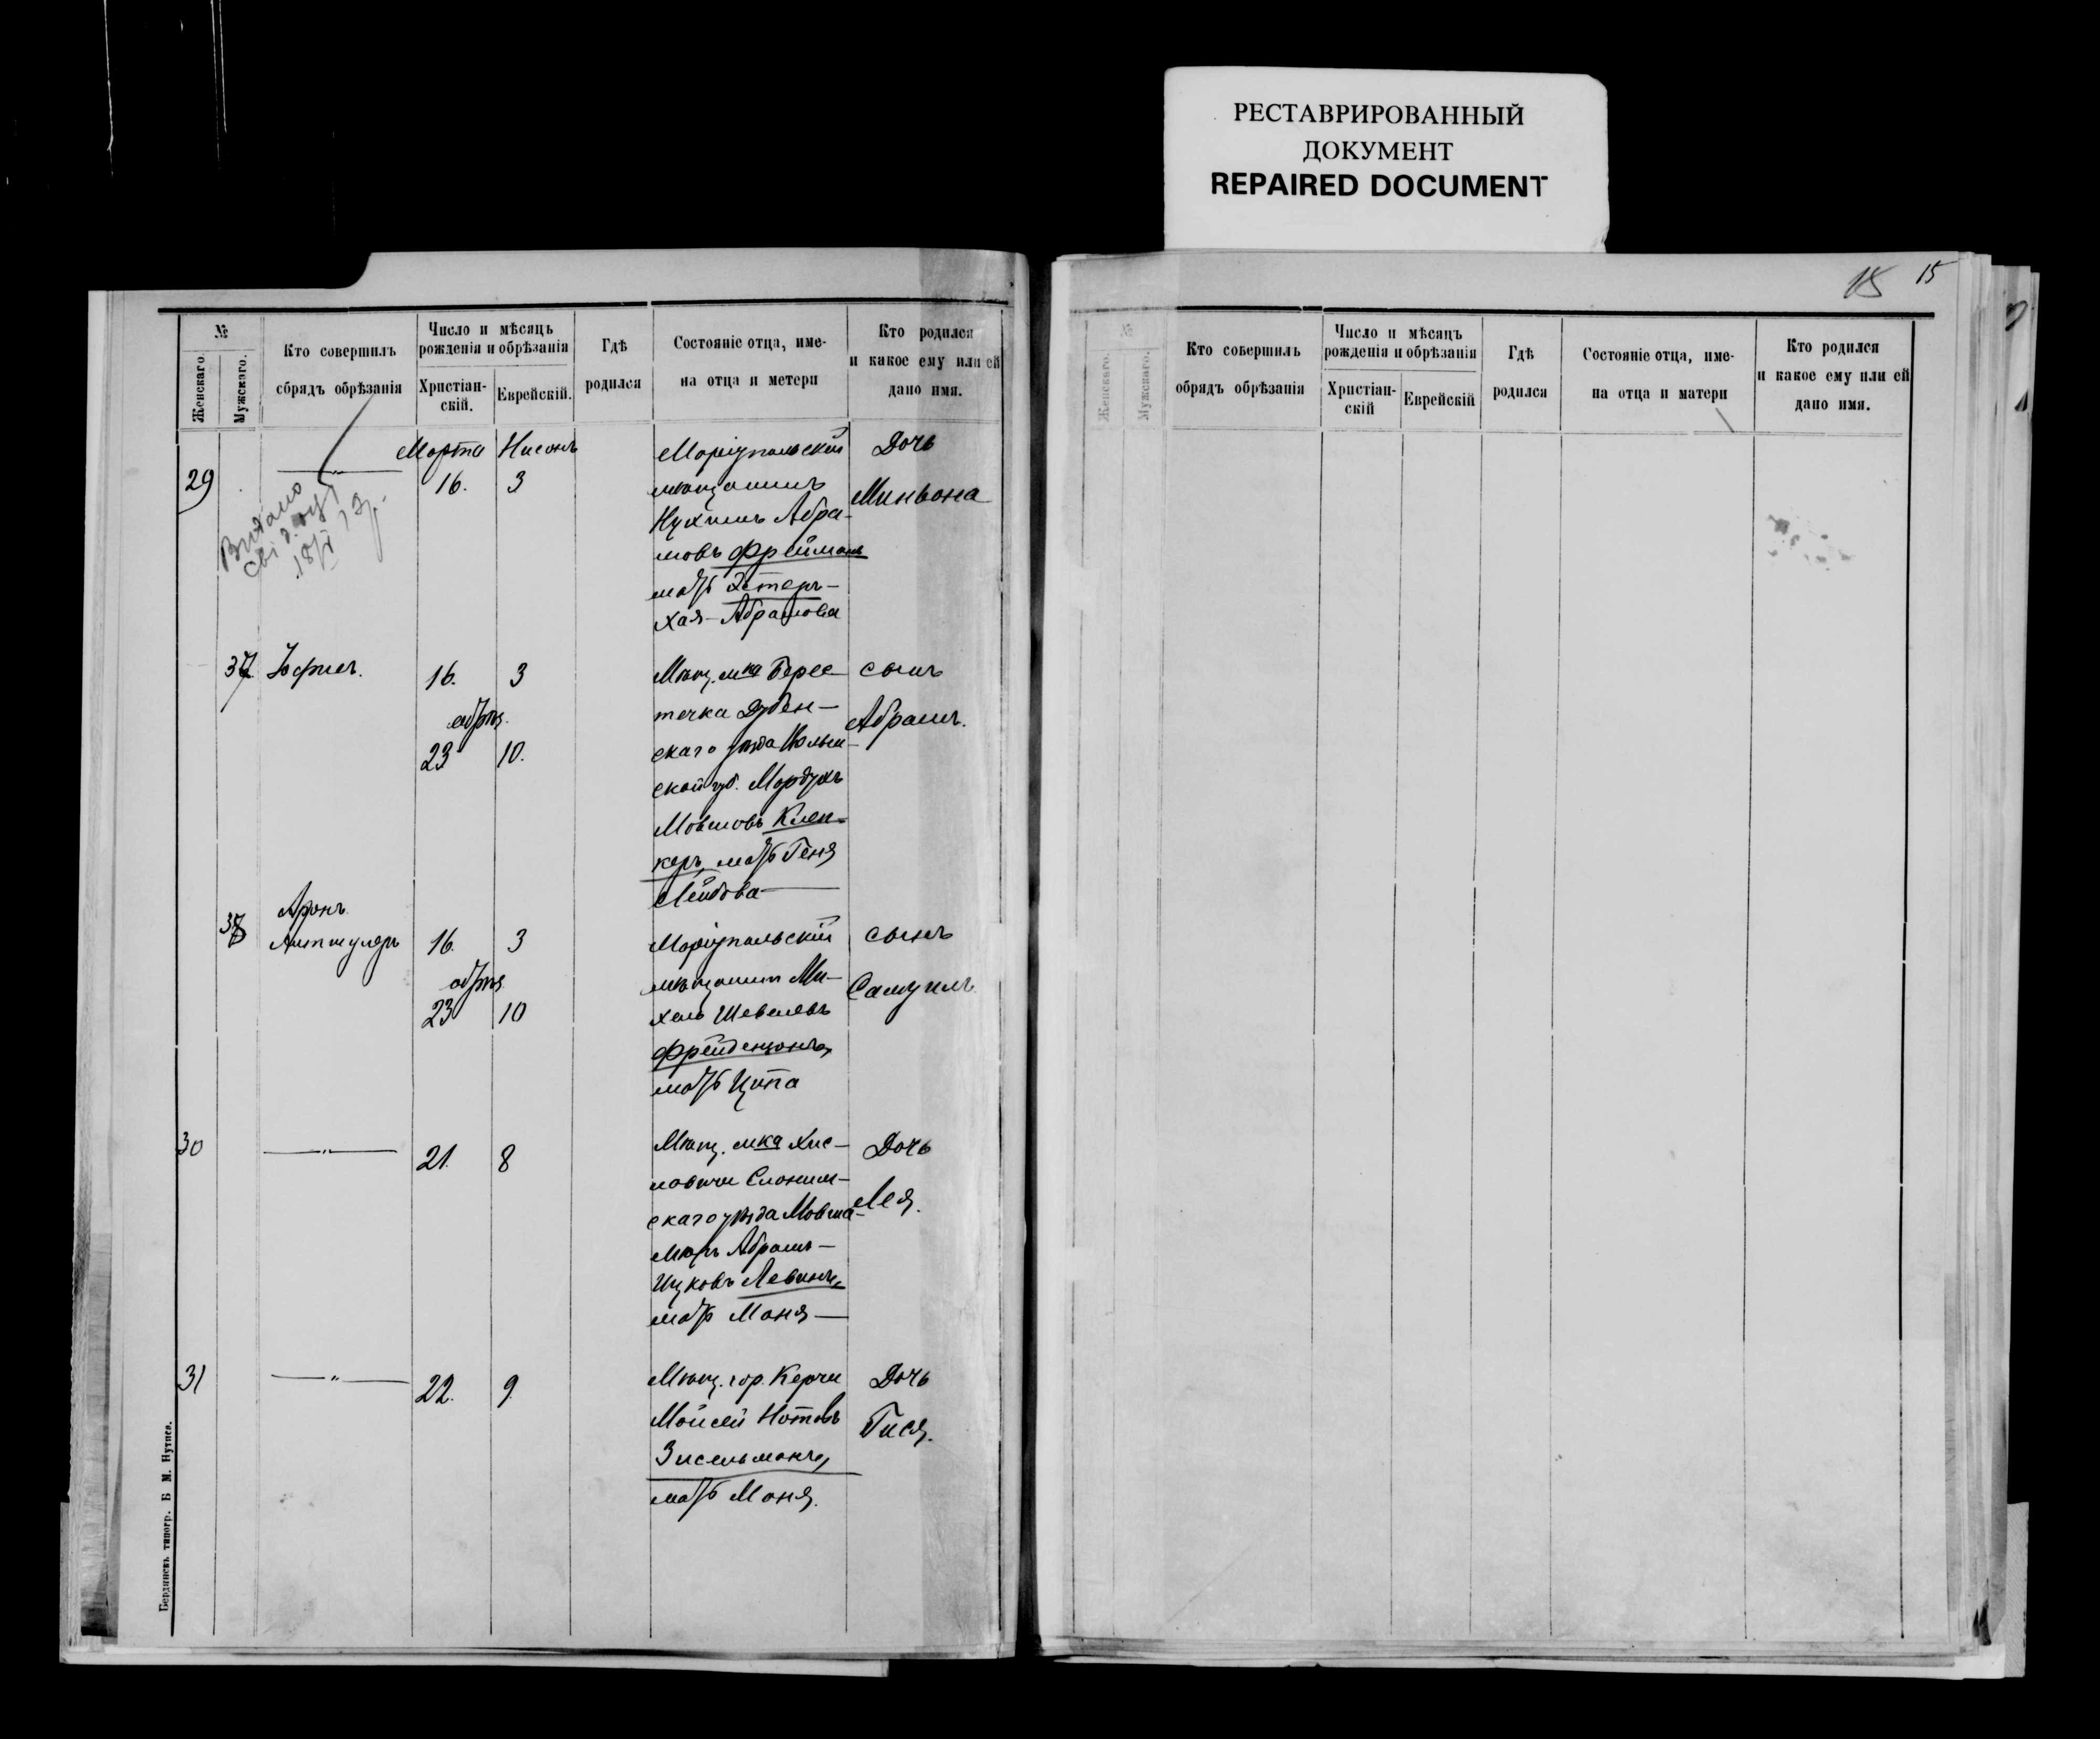 РЕСТАВРИРОВАННЫЙ
ДОКУМЕНТ
REPAIRED DOCUMENT
№
Женскаго.
Мужскаго.
Кто совершилъ
сбрядъ обрѣзанія
Число и мѣсяцъ
рожденія и обрѣзанія
Христіан-
скій.
Еврейскій.
Гдѣ
родился
Состояніе отца, име-
на отца и метери
Кто родился
и какое ему или ей
дано имя.
Марта Нисонъ
29 —„— 16. 3
Видано
18/I
Маріупольскій
мѣщанинъ
Нухимъ Абра-
мовъ Фрейманъ
мать Эстеръ-
Хая-Абрамова
Дочь
Миньона
37 16. 3
обрѣз.
23 10.
Мѣщ. м-ка Берес-
течка Дубен-
скаго уѣзда Волын-
ской губ. Мордухъ
Мовшовъ Клей-
керъ, мать Геня
Лейбова
сынъ
Абрамъ.
38 Аронъ
Альтшулеръ 16. 3
обрѣз.
23 10
Маріупольскій
мѣщанинъ Ми-
хель Шевелевъ
Фрейденцонъ,
мать Ципа
сынъ
Самуилъ.
30 —„— 21. 8
скаго уѣзда Мовша-
Мееръ Абрамъ-
Ицковъ Левинъ,
мать Маня
Дочь
Лея.
31 —„— 22. 9.
Мѣщ. гор. Керчи
Мойсей Нотовъ
Зисельманъ,
мать Маня.
Дочь
Гися.
Бердянскъ типогр. Б М. Нутиса.
15 15
№
Женскаго.
Мужскаго.
Кто совершилъ
обрядъ обрѣзанія
Число и мѣсяцъ
рожденія и обрѣзанія
Христіан-
скій
Еврейскій
Гдѣ
родился
Состояніе отца, име-
на отца и матери
Кто родился
и какое ему или ей
дано имя.